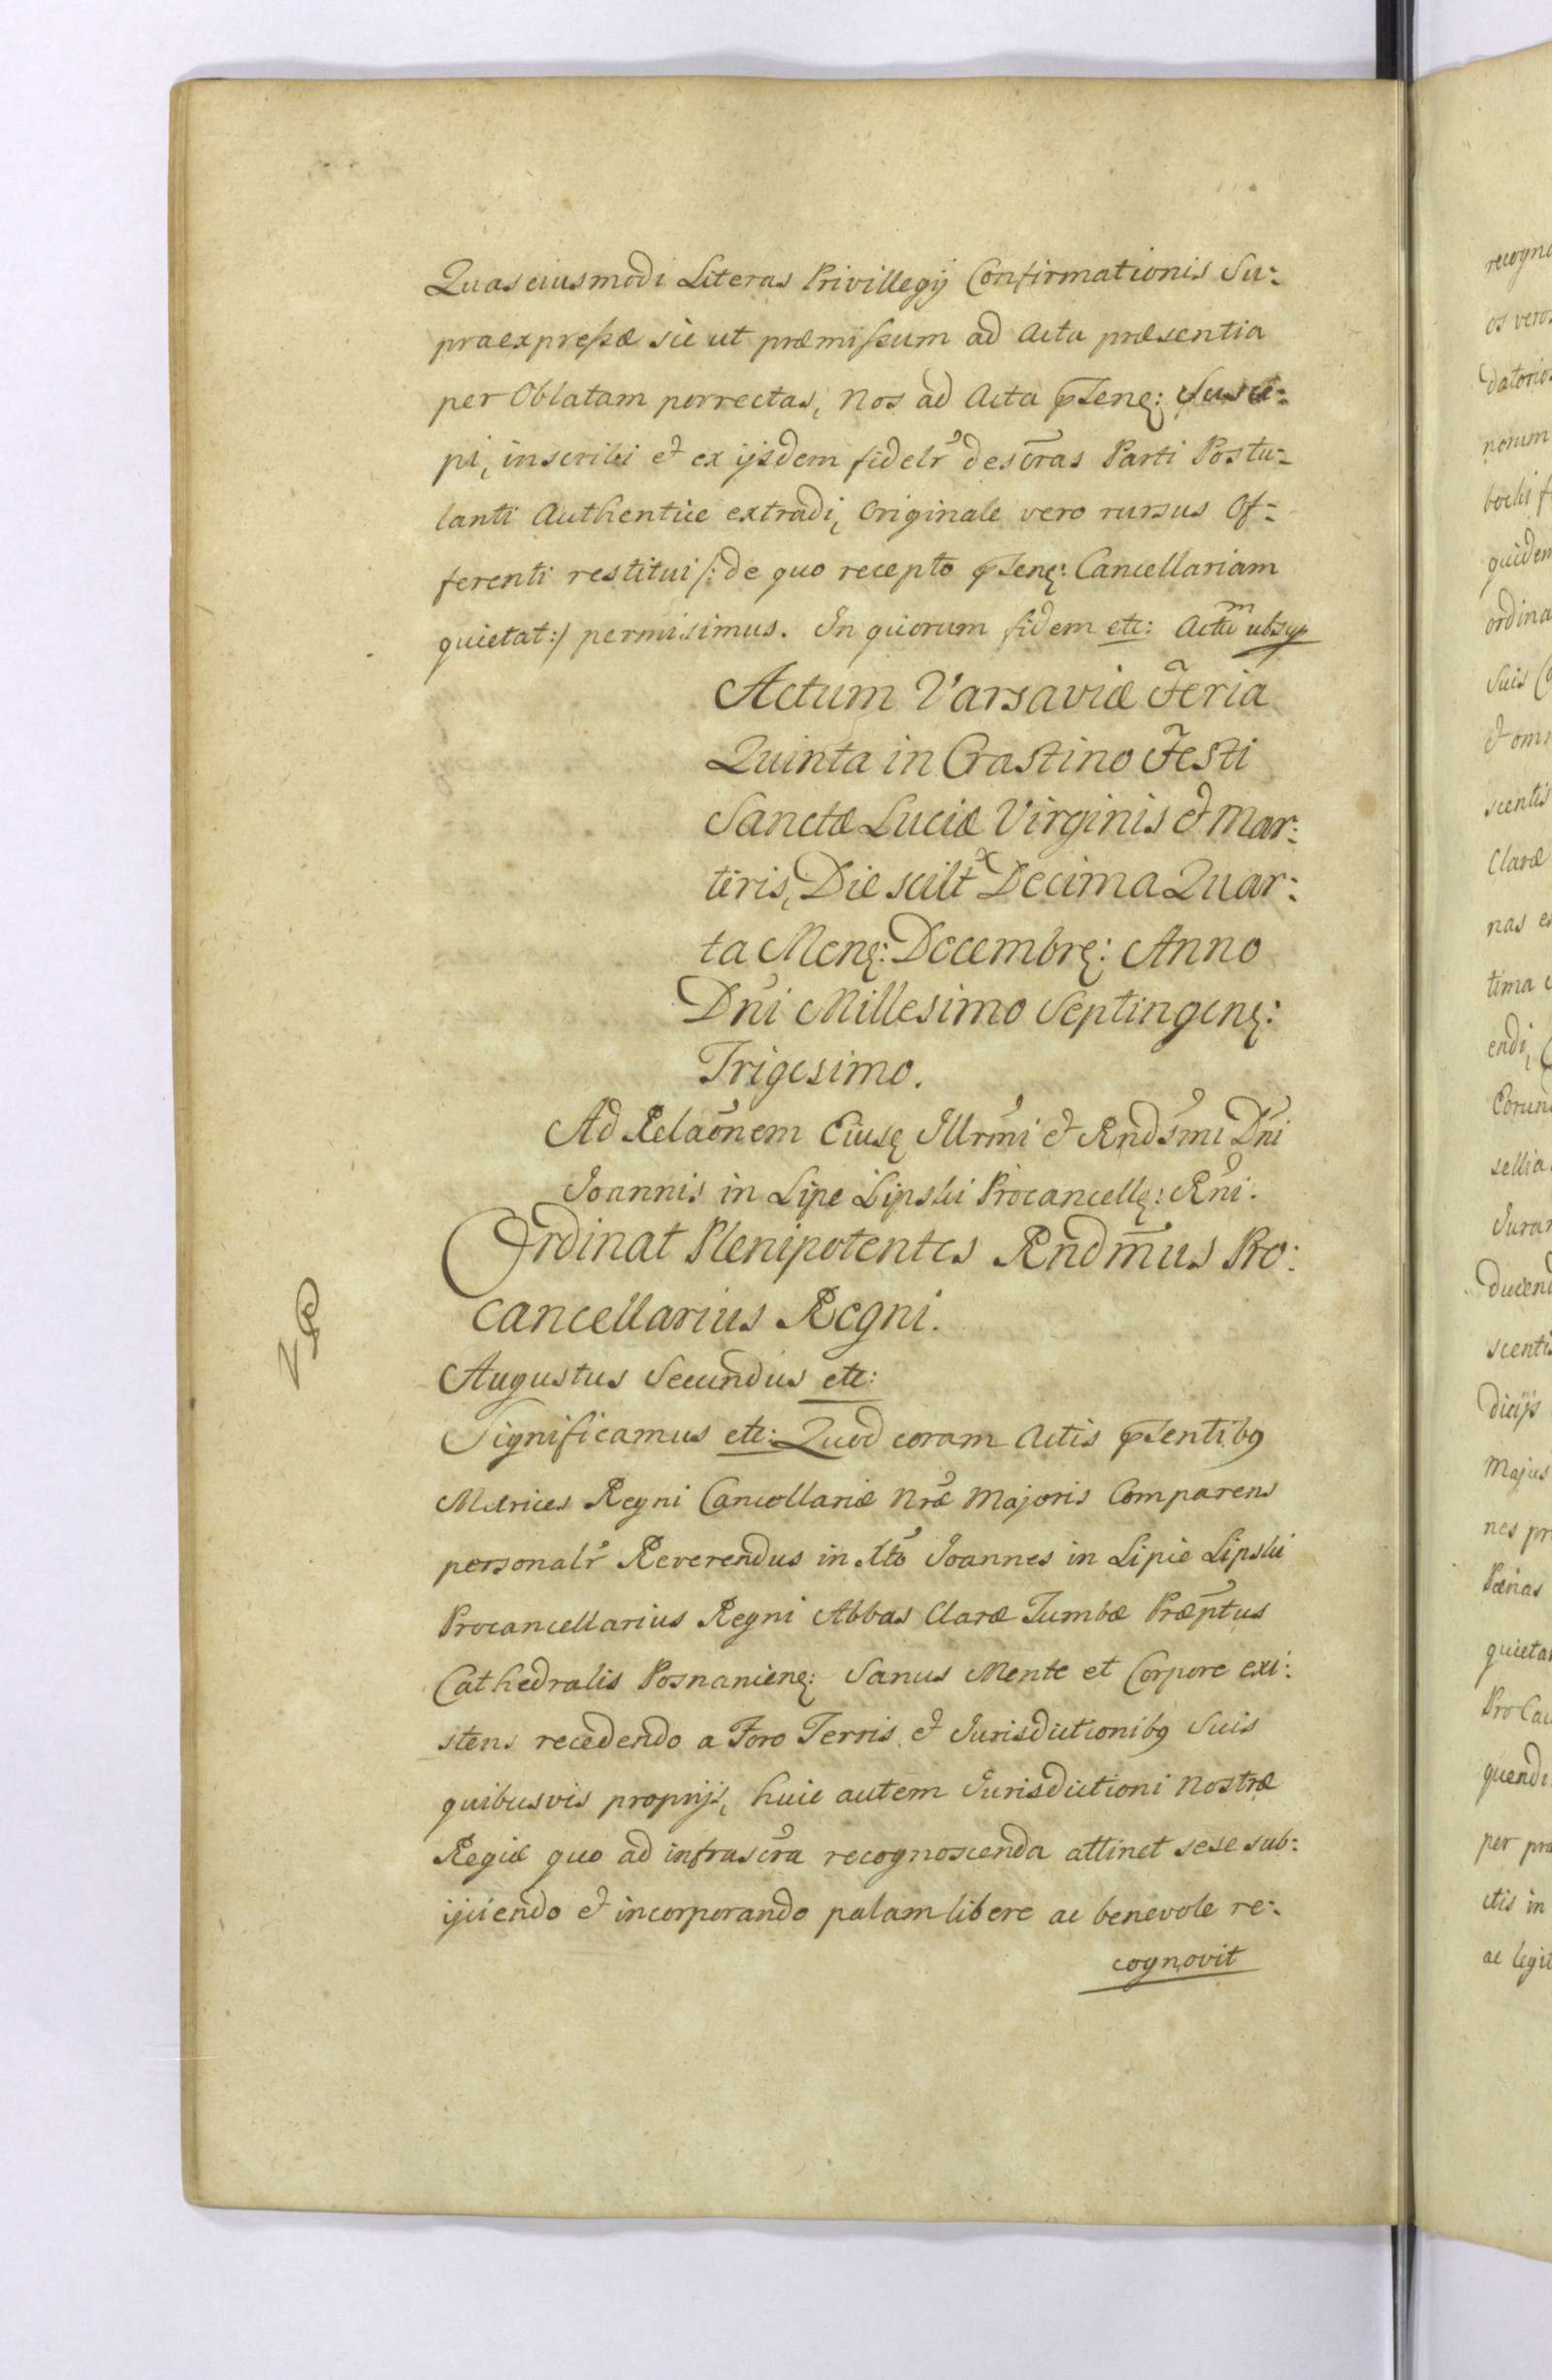 Quas eiusmodi Literas Privillegij Confirmationis Su:
praexpressæ sic ut præmissum ad Acta præsentia
per Oblatam porrectas, Nos ad Acta pñsenę: Susci:
pi, inscribi et ex ijsdem fidelr̃ descr̃as Parti Postu:
lanti Authentice extradi, Originale vero rursus Of:
ferenti restitui /: de quo recepto pñsenę: Cancellariam
quietat :/ permisimus. In quorum fidem etc: Actũm ub sup
Actum Varsaviæ Feria
Quinta in Crastino Festi
Sanctæ Luciæ Virginis et Mar:
tiris, Die scilt Decima Quar:
ta Menę: Decembrę: Anno
Dñi Millesimo Septingenę:
Trigesimo.
Ad Relaõnem Eiusę Illrm̃i et Rnds̃mi Dñi
Joannis in Lipe Lipski Procancellę: Rñi.
Ordinat Plenipotentes Rndm̃us Pro:
cancellarius Regni.
Augustus Secundus etc:
Significamus etc: Quod coram Actis pñsentibꝰ
Metrices Regni Cancellariæ Nr̃æ Majoris Comparens
personalr̃ Reverendus in Xto Joannes in Lipie Lipski
Procancellarius Regni Abbas Claræ Tumbæ Præp̃tus
Cathedralis Posnanienę: Sanus Mente et Corpore exi:
stens recedendo a Foro Terris et Jurisdictionibꝰ Suis
quibusvis proprijs, huic autem Jurisdictioni Nostræ
Regiæ quo ad infrascr̃a recognoscenda attinet sese sub:
ijciendo et incorporando palam libere ac benevole re:
cognovit
recogno
os vero
datorios
norum
quidem
ordina
Suis
et omn
scentis
Claræ
nas
tima
endi,
Eorund
sellia
Juran
ducend
scentis
dicijs
Majus
nes pr
Pænas
quietat
Pro Can
quendi
per præ
ctis in
ac legit